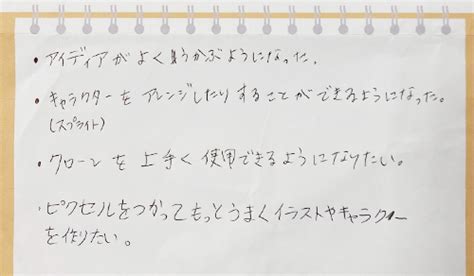 ・アイディアがよくうかぶようになった.
・キャラクターをアレンジしたりすることができるようになった。
(スプライト)
・クローンを上手く使用できるようになりたい。
・ピクセルをつかってもっとうまくイラストやキャラクター
を作りたい。